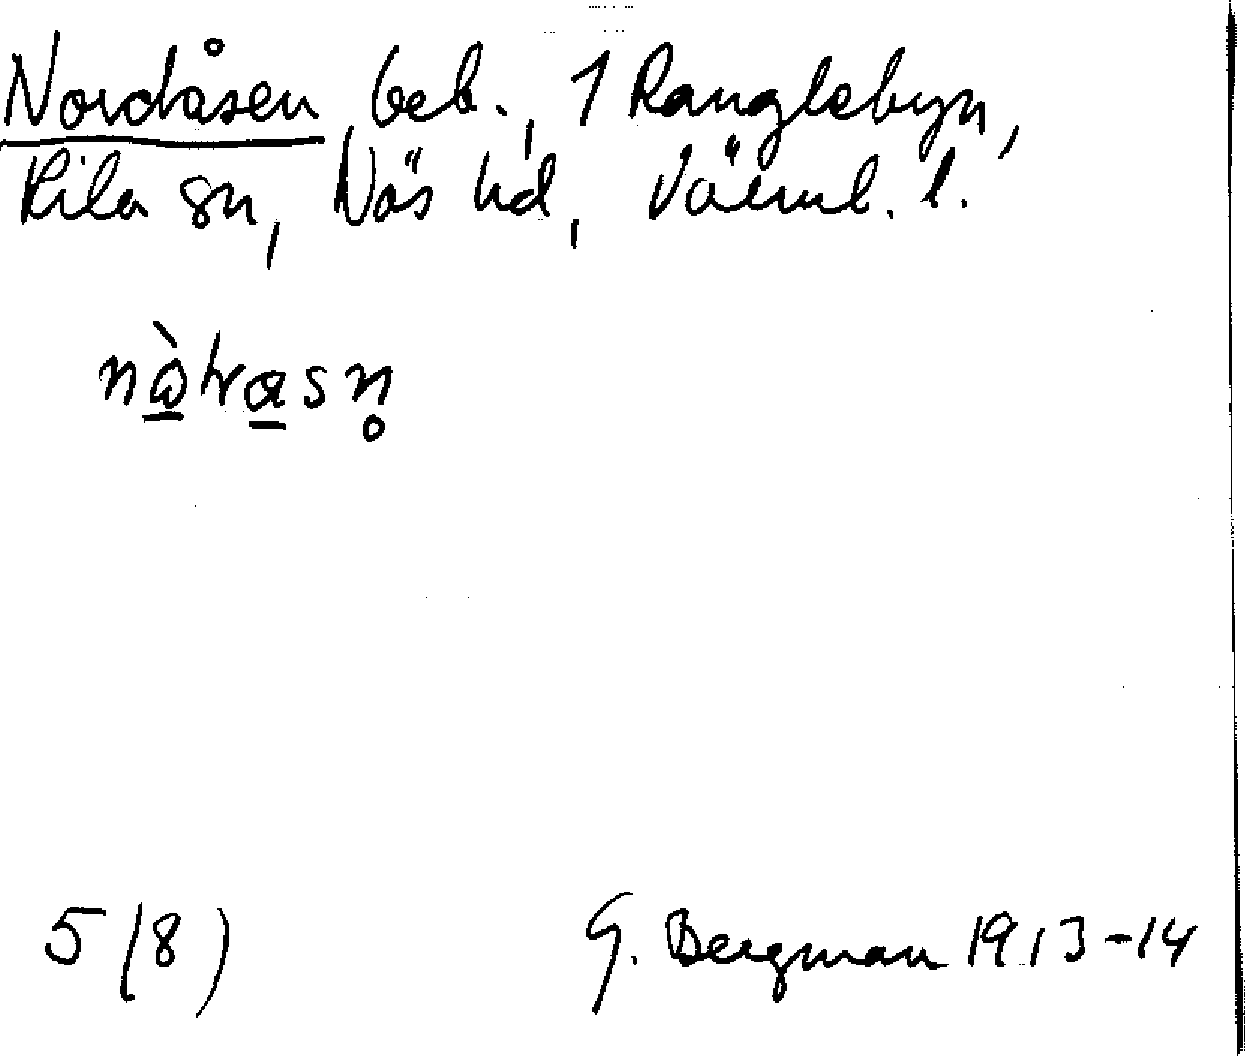 Nordåsen, beb., 1 Ranglebyn,
Kila sn, Näs hd, Värml. l.
5 (8) G. Bergman 1913-14